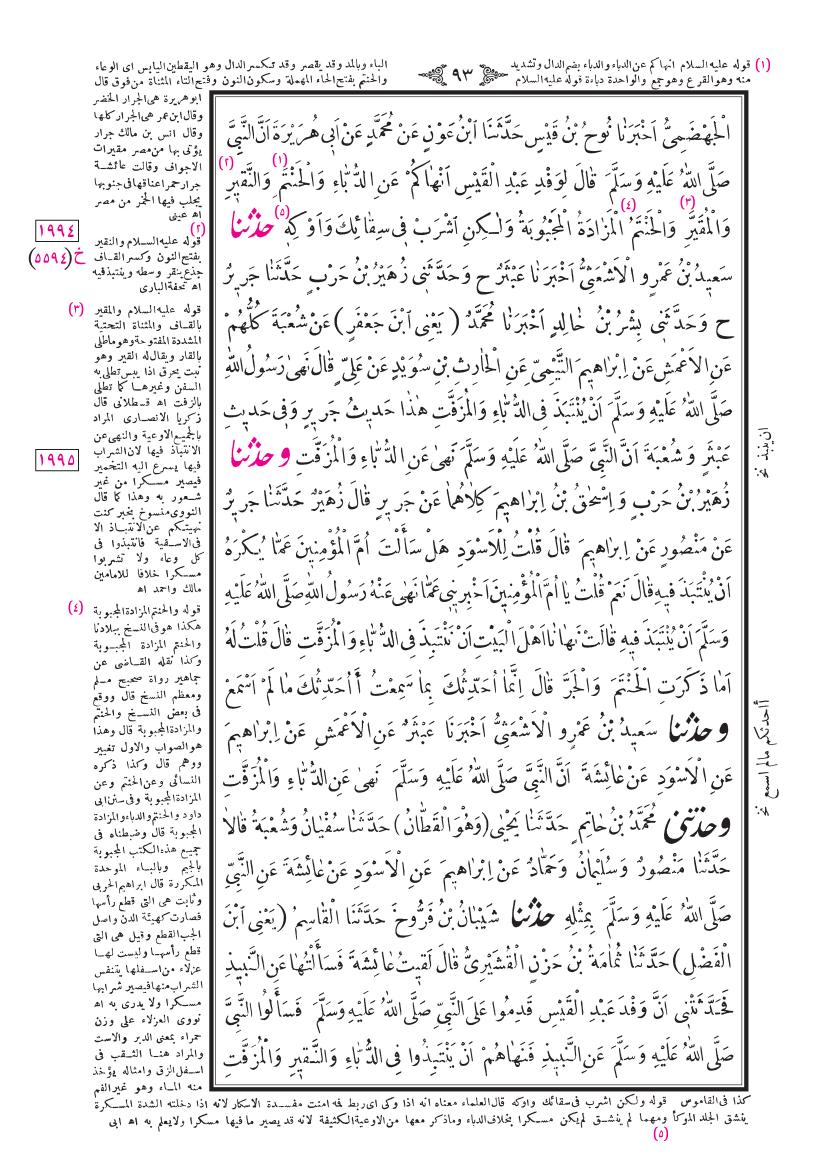 (١) قوله عليه السلام انهاكم عن الدباء والدباء بضم الدال وتشديد
الباء وبالمد وقد يقصر وقد تكسر الدال وهو اليقطين اليابس اى الوعاء
٩٣
منه وهو القرع وهو جمع والواحدة دباءة قوله عليه السلام
والحنتم بفتح الحاء المهملة وسكون النون وفتح التاء المثناة من فوق قال
ابو هريرة هى الجرار الخضر
وقال ابن عمر هى الجرار كلها
وقال انس بن مالك جرار
يؤتى بها من مصر مقيرات
الاجواف وقالت عائشة
جرار حمر اعناقها فى جنوبها
يجلب فيها الخمر من مصر
اه عينى
(٢)
قوله عليه السلام والنقير
بفتح النون وكسر القاف
جذع ينقر وسطه وينتبذ فيه
اه تحفة البارى
(٣) قوله عليه السلام والمقير
بالقاف والمثناة التحتية
المشددة المفتوحة وهو ما طلى
بالقار ويقال له القير وهو
نبت يحرق اذا يبس تطلى به
السفن وغيرها كما تطلى
بالزفت اه قسطلانى قال
زكريا الانصارى المراد
بالجميع الاوعية والنهى عن
الانتباذ فيها لان الشراب
فيها يسرع اليه التخمير
فيصير مسكرا من غير
شعور به وهذا كما قال
النووى منسوخ بخبر كنت
نهيتكم عن الانتباذ الا
فى الاسقية فانتبذوا فى
كل وعاء ولا تشربوا
مسكرا خلافا للامامين
مالك واحمد اه
(٤) قوله والحنتم المزادة المجبوبة
هكذا هو فى النسخ ببلادنا
والحنتم المزادة المجبوبة
وكذا نقله القاضى عن
جماهير رواة صحيح مسلم
ومعظم النسخ قال ووقع
فى بعض النسخ والحنتم
والمزادة المجبوبة قال وهذا
هو الصواب والاول تغيير
ووهم قال وكذا ذكره
النسائى وعن الحنتم وعن
المزادة المجبوبة وفى سنن ابى
داود والحنتم والدباء والمزادة
المجبوبة قال وضبطناه فى
جميع هذه الكتب المجبوبة
بالجيم وبالباء الموحدة
المكررة قال ابراهيم الحربى
وثابت هى التى قطع رأسها
فصارت كهيئة الدن واصل
الجب القطع وقيل هى التى
قطع رأسها وليست لها
عزلاء من اسفلها يتنفس
الشراب منها فيصير شرابها
مسكرا ولا يدرى به اه
نووى العزلاء على وزن
حمراء بمعنى الدبر والاست
والمراد هنا الثقب فى
اسفل الزق وامثاله يؤخذ
منه الماء وهو غير الفم
١٩٩٤
خ (٥٥٩٤)
١٩٩٥
الْجَهْضَمِىُّ اَخْبَرَنَا نُوحُ بْنُ قَيْسٍ حَدَّثَنَا ابْنُ عَوْنٍ عَنْ مُحَمَّدٍ عَنْ اَبِى هُرَيْرَةَ اَنَّ النَّبِىَّ
صَلَّى اللهُ عَلَيْهِ وَسَلَّمَ قَالَ لِوَفْدِ عَبْدِ الْقَيْسِ اَنْهَاكُمْ عَنِ الدُّبَّاءِ (١) وَالْحَنْتَمِ وَالنَّقِيرِ (٢)
وَالْمُقَيَّرِ (٣) وَالْحَنْتَمُ (٤) الْمَزَادَةُ الْمَجْبُوبَةُ وَلٰكِنِ اشْرَبْ فِى سِقَائِكَ وَاَوْكِهِ (٥) حَدَّثَنَا
سَعِيدُ بْنُ عَمْرٍو الْاَشْعَثِىُّ اَخْبَرَنَا عَبْثَرٌ ح وَحَدَّثَنِى زُهَيْرُ بْنُ حَرْبٍ حَدَّثَنَا جَرِيرٌ
ح وَحَدَّثَنِى بِشْرُ بْنُ خَالِدٍ اَخْبَرَنَا مُحَمَّدٌ (يَعْنِى ابْنَ جَعْفَرٍ) عَنْ شُعْبَةَ كُلُّهُمْ
عَنِ الْاَعْمَشِ عَنْ اِبْرَاهِيمَ التَّيْمِىِّ عَنِ الْحَارِثِ بْنِ سُوَيْدٍ عَنْ عَلِىٍّ قَالَ نَهٰى رَسُولُ اللهِ
صَلَّى اللهُ عَلَيْهِ وَسَلَّمَ اَنْ يُنْتَبَذَ فِى الدُّبَّاءِ وَالْمُزَفَّتِ هٰذَا حَدِيثُ جَرِيرٍ وَفِى حَدِيثِ
عَبْثَرٍ وَشُعْبَةَ اَنَّ النَّبِىَّ صَلَّى اللهُ عَلَيْهِ وَسَلَّمَ نَهٰى عَنِ الدُّبَّاءِ وَالْمُزَفَّتِ وَحَدَّثَنَا
زُهَيْرُ بْنُ حَرْبٍ وَاِسْحٰقُ بْنُ اِبْرَاهِيمَ كِلَاهُمَا عَنْ جَرِيرٍ قَالَ زُهَيْرٌ حَدَّثَنَا جَرِيرٌ
عَنْ مَنْصُورٍ عَنْ اِبْرَاهِيمَ قَالَ قُلْتُ لِلْاَسْوَدِ هَلْ سَأَلْتَ اُمَّ الْمُؤْمِنِينَ عَمَّا يُكْرَهُ
اَنْ يُنْتَبَذَ فِيهِ قَالَ نَعَمْ قُلْتُ يَا اُمَّ الْمُؤْمِنِينَ اَخْبِرِينِى عَمَّا نَهٰى عَنْهُ رَسُولُ اللهِ صَلَّى اللهُ عَلَيْهِ
وَسَلَّمَ اَنْ يُنْتَبَذَ فِيهِ قَالَتْ نَهَانَا اَهْلَ الْبَيْتِ اَنْ نَنْتَبِذَ فِى الدُّبَّاءِ وَالْمُزَفَّتِ قَالَ قُلْتُ لَهُ
اَمَا ذَكَرَتِ الْحَنْتَمَ وَالْجَرَّ قَالَ اِنَّمَا اُحَدِّثُكَ بِمَا سَمِعْتُ أَاُحَدِّثُكَ مَا لَمْ اَسْمَعْ
وَحَدَّثَنَا سَعِيدُ بْنُ عَمْرٍو الْاَشْعَثِىُّ اَخْبَرَنَا عَبْثَرٌ عَنِ الْاَعْمَشِ عَنْ اِبْرَاهِيمَ
عَنِ الْاَسْوَدِ عَنْ عَائِشَةَ اَنَّ النَّبِىَّ صَلَّى اللهُ عَلَيْهِ وَسَلَّمَ نَهٰى عَنِ الدُّبَّاءِ وَالْمُزَفَّتِ
وَحَدَّثَنِى مُحَمَّدُ بْنُ حَاتِمٍ حَدَّثَنَا يَحْيٰى (وَهُوَ الْقَطَّانُ) حَدَّثَنَا سُفْيَانُ وَشُعْبَةُ قَالَا
حَدَّثَنَا مَنْصُورٌ وَسُلَيْمَانُ وَحَمَّادٌ عَنْ اِبْرَاهِيمَ عَنِ الْاَسْوَدِ عَنْ عَائِشَةَ عَنِ النَّبِىِّ
صَلَّى اللهُ عَلَيْهِ وَسَلَّمَ بِمِثْلِهِ حَدَّثَنَا شَيْبَانُ بْنُ فَرُّوخَ حَدَّثَنَا الْقَاسِمُ (يَعْنِى ابْنَ
الْفَضْلِ) حَدَّثَنَا ثُمَامَةُ بْنُ حَزْنٍ الْقُشَيْرِىُّ قَالَ لَقِيتُ عَائِشَةَ فَسَأَلْتُهَا عَنِ النَّبِيذِ
فَحَدَّثَتْنِى اَنَّ وَفْدَ عَبْدِ الْقَيْسِ قَدِمُوا عَلَى النَّبِىِّ صَلَّى اللهُ عَلَيْهِ وَسَلَّمَ فَسَأَلُوا النَّبِىَّ
صَلَّى اللهُ عَلَيْهِ وَسَلَّمَ عَنِ النَّبِيذِ فَنَهَاهُمْ اَنْ يَنْتَبِذُوا فِى الدُّبَّاءِ وَالنَّقِيرِ وَالْمُزَفَّتِ
ان ينبذ نخ
أأحدثكم مالم اسمع نخ
كذا فى القاموس قوله ولكن اشرب فى سقائك واوكه قال العلماء معناه انه اذا وكى اى ربط فمه امنت مفسدة الاسكار لانه اذا دخلته الشدة المسكرة
ينشق الجلد الموكأ ومهما لم ينشق لم يكن مسكرا بخلاف الدباء وما ذكر معها من الاوعية الكثيفة لانه قد يصير ما فيها مسكرا ولا يعلم به اه ابى
(٥)